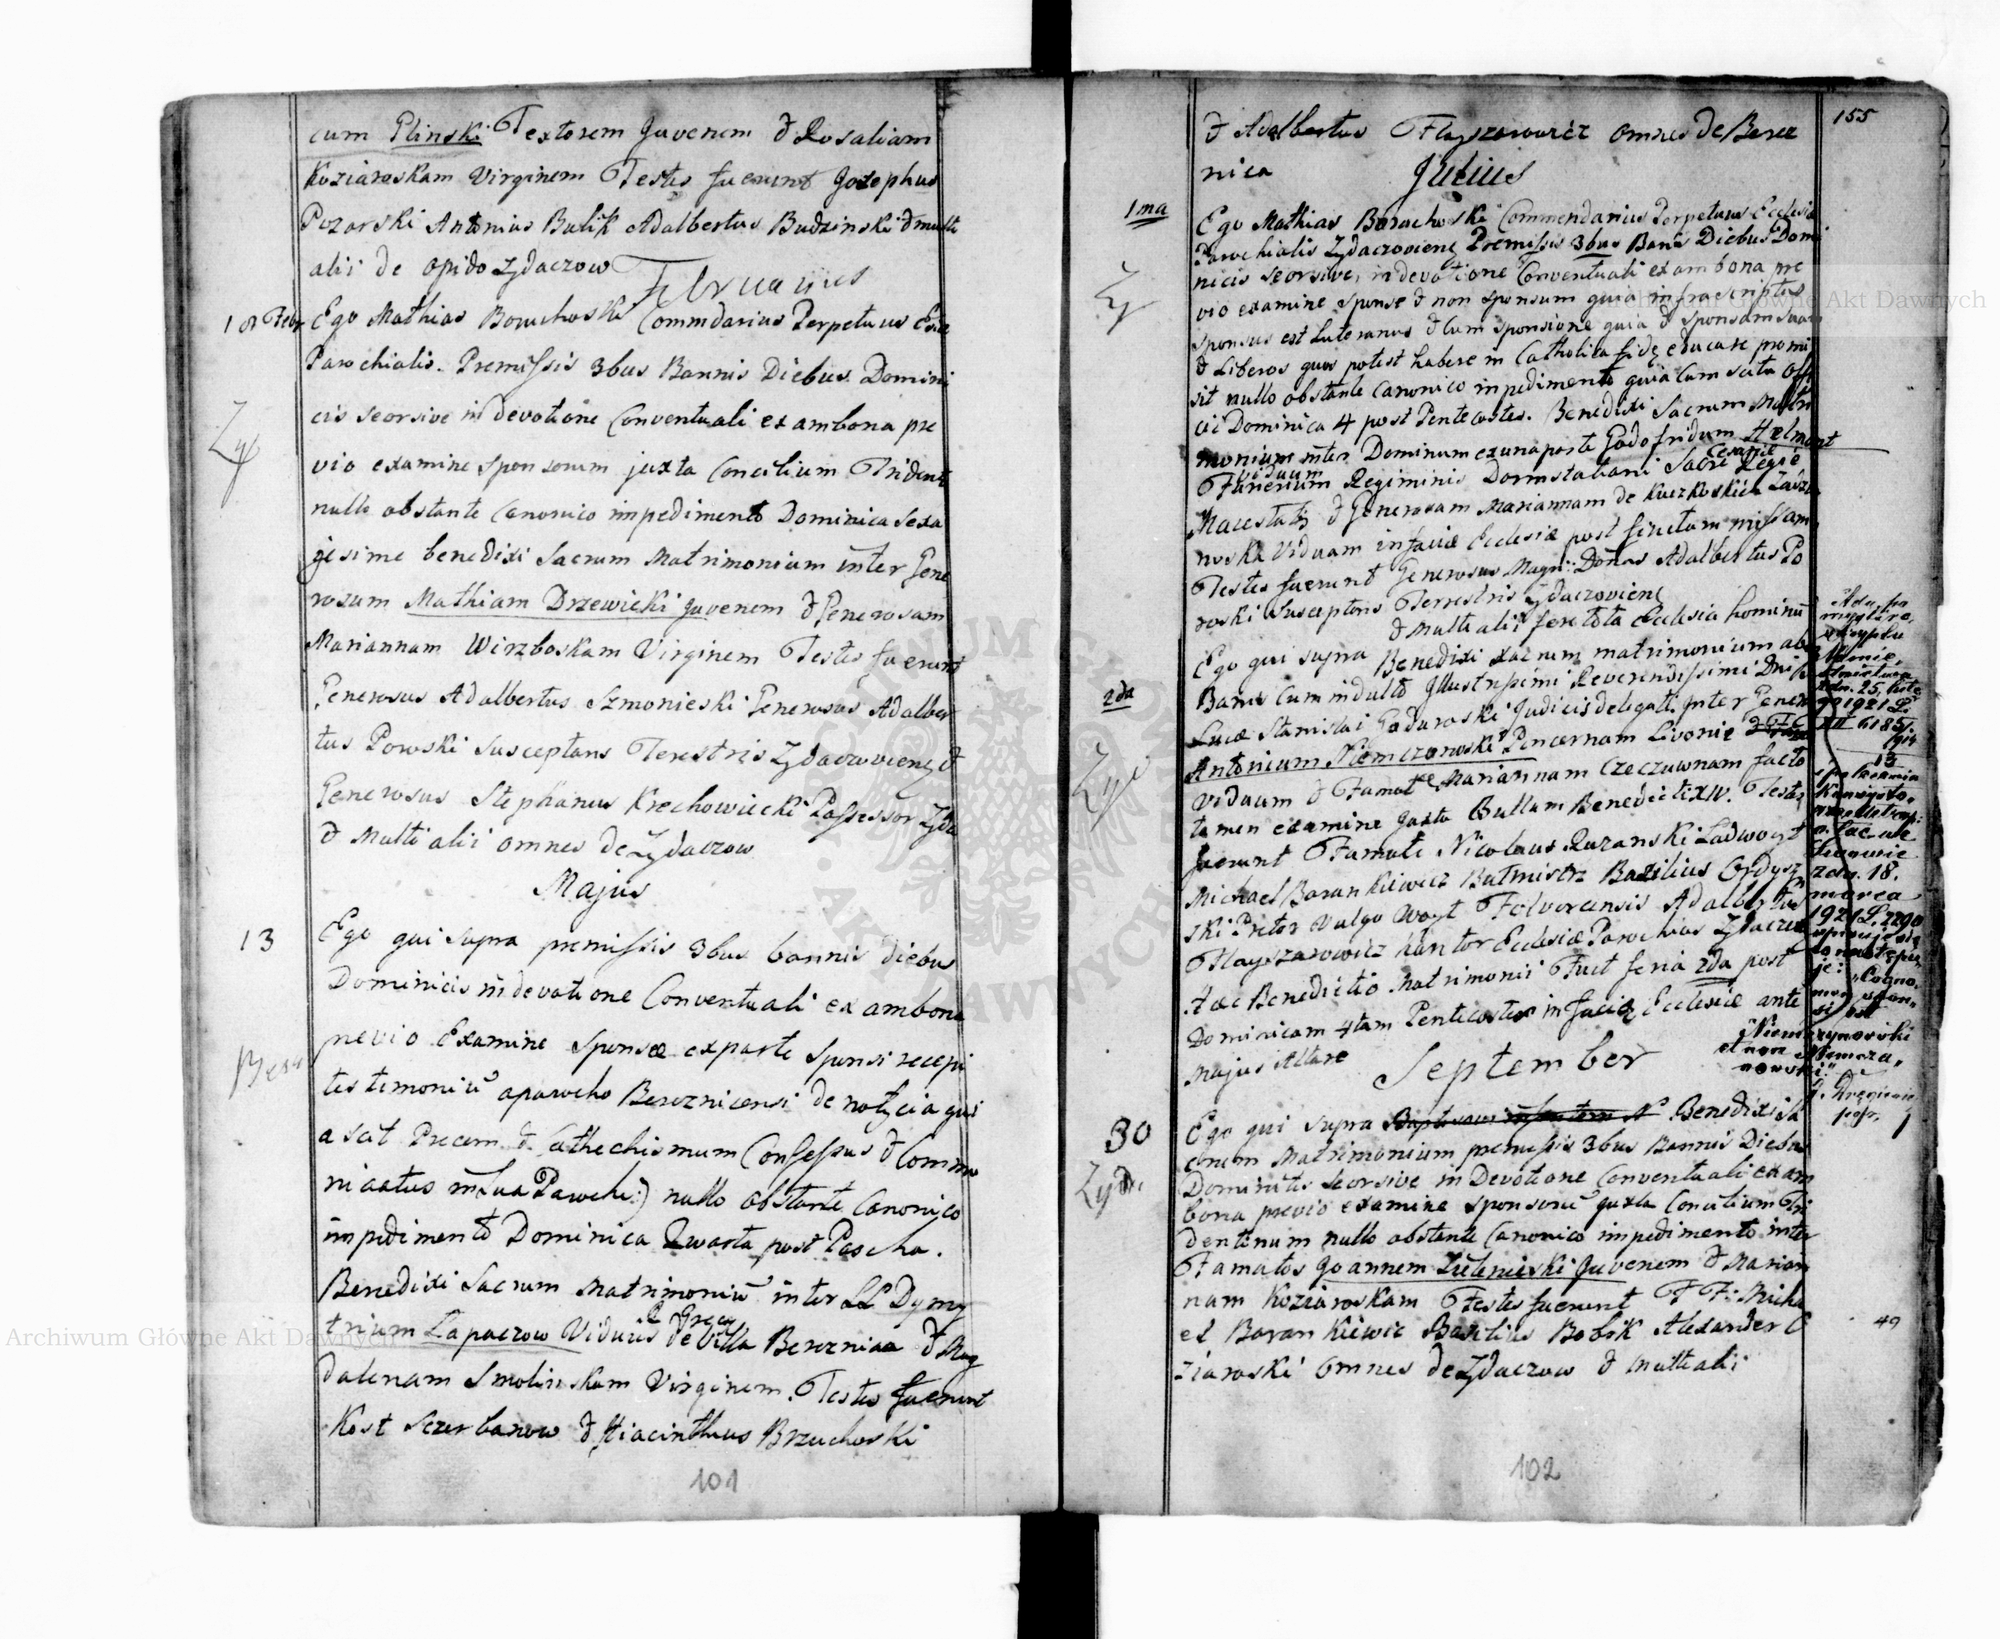 cum Plinski Textorem Juvenem & Rosaliam
Koziaroskam Virginem Testes fuerunt Josephus
Pozarski Antonius Bulik Adalbertus Budzinski & multi
alii de opido Zydaczow
Februarius
18 Febr Ego Mathias Boruchoski Commdarius Perpetuus
Parochialis. Premissis 3bus Bannis Diebus Domini
cis seorsive in devotione Conventuali ex ambona pre
Zy
vio examine sponsorum juxta Concilium Trident
nullo obstante Canonico impedimento Dominica Sexa
gesime benedixi Sacrum Matrimonium inter Gene
rosum Mathiam Drzewicki Juvenem & Generosam
Mariannam Wirzboskam Virginem Testes fuerunt
Generosus Adalbertus Szmonieski Generosus Adalber
tus Powski Susceptans Terestris Zydaczowieng &
Generosus Stephanus Krechowiecki Possessor Zyda
& Multi alii omnes de Zydaczow
Majus
13 Ego qui supra premissis 3bus bannis diebus
Dominicis in devotione Conventuali ex ambona
previo Examine Sponsæ ex parte Sponsi recepi
testimoniu aparocho Bereznicensi de notycia qui
a scit Precem & Cathechismum Confessus & Commu
nicatus in sua Paroch:) nullo obstante Canonico
impedimento Dominica Quarta post Pascha.
Benedixi Sacrum Matrimoniu inter LL Dymy
trium Lapaczow Viduu de villa Bereznica & Mag
dalenam Smolinskam Virginem. Testes fuerunt
Kost Sczerbanow & Hiacinthus Brzuchoski
101
155
& Adalbertus Flayszarowicz omnes de Berez
nica
Julius
1ma
Ego Mathias Boruchoski Commendarius Perpetuus Ecclesiæ
Parochialis Zydaczovieng Premissis 3bus Banis Diebus Domi
nicis seorsive, in devotione Conventuali ex ambona pre
Zy
vio examine sponse & non sponsum quia infrascriptus
sponsus est Luteranus & cum sponsione quia & sponsam suam
& Liberos quos potest habere in Catholica fide educare promi
sit nullo obstante canonico impedimento quia cum scitu Offi
cii Dominica 4 post Pentecostes. Benedixi Sacrum Matri
monium inter Dominum ex una parte Godofridum Helmont
viduum
Cesareæ
Furierium Regiminis Dormstatiani Sacre Regie
Maiestatis & Generosam Mariannam de Kuczkoskich
noska Viduam in facie Ecclesiæ post finitam missam
Testes fuerunt Generosus Magn: Donus Adalbertus Po
roski Susceptoris Terrestris Zydaczovieng
& Multi alii fere tota Ecclesia hominu
2da
Ego qui supra Benedixi sacrum matrimonium ab
Banis cum indulto Illustrissimi Reverendissimi Dni
Lucæ Stanislai Goduroski Judicis delegati inter Gener
Antonium Niemczonowski Pincernam Livonie
Zy
viduum & Famate Mariannam Czeczuwnam facto
tamen examine Juxta Bullam Benedicti XIV. Testes
fuerunt Famati Nicolaus Ruzanski Ladwoyt
Michael Barankiewicz Butmistrz Bazilius Ordysz
ski Pretor vulgo Woyt Folvarcensis Adalbertus
Flayszarowicz Kantor Ecclesiæ Parochias Zydaczov
Hæc Benedictio Matrimonii Fuit feria 2da post
Dominicam 4tam Penticostes in faciæ Ecclesiæ ante
Majus Altare
września 25. lute
go 1921 L.
XII 6185/
Konsysto-
Lwowie
z dn. 18.
marca
1921 L. 2290
je: "Cogno-
men spon-
si est
"Niemczynowski
et non Niemcza-
nowski."
September
30
Ego qui supra Baptisavi infantem N Benedixi Sa
crum Matrimonium premissis 3bus Bannis Diebus
Zyd.
Dominicis seorsive in Devotione Conventuali ex am
bona previo examine sponsoru juxta Concilium Tri
dentinum nullo obstante Canonico impedimento inter
Famatos Joannem Zieleniski Juvenem & Marian
nam Koziaroskam Testes fuerunt F F: Micha
el Barankiewic Basilius Bobik Alexander C
ziaroski omnes de Zydaczow & Multi alii
49
102
Archiwum Główne Akt Dawnych